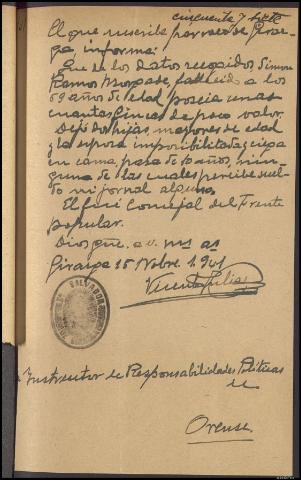 cincuenta y siete
El que suscribe parroco de
informa:
Que de los datos recogidos
Ramos fallecido a los
69 años de edad poseia unas
cuantas fincas de poco valor.
Dejó dos hijas, mayores de edad
y la esposa imposibilitada y ciega
en cama, pasa de años, nin-
guna de las cuales percibe suel-
do ni jornal alguno.
El fué Concejal del Frente
popular.
Dios gue. a v. ms. as
Girazga 15 Nobre. 1.941
Vicente
SALVADOR
Instructor de Responsabilidades Politicas
de
Orense.